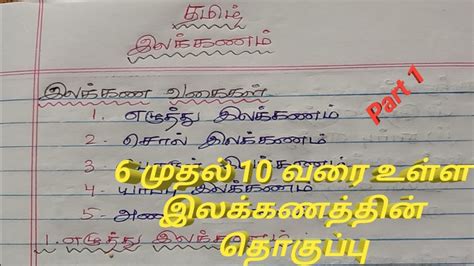 தமிழ்
இலக்கணம்
இலக்கண வகைகள்
1. எழுத்து இலக்கணம்
2. சொல் இலக்கணம்
3 இலக்கணம்
4 இலக்கணம்
5.
1. எழுத்து இலக்கணம்
Part 1
6 முதல் 10 வரை உள்ள
இலக்கணத்தின்
தொகுப்பு